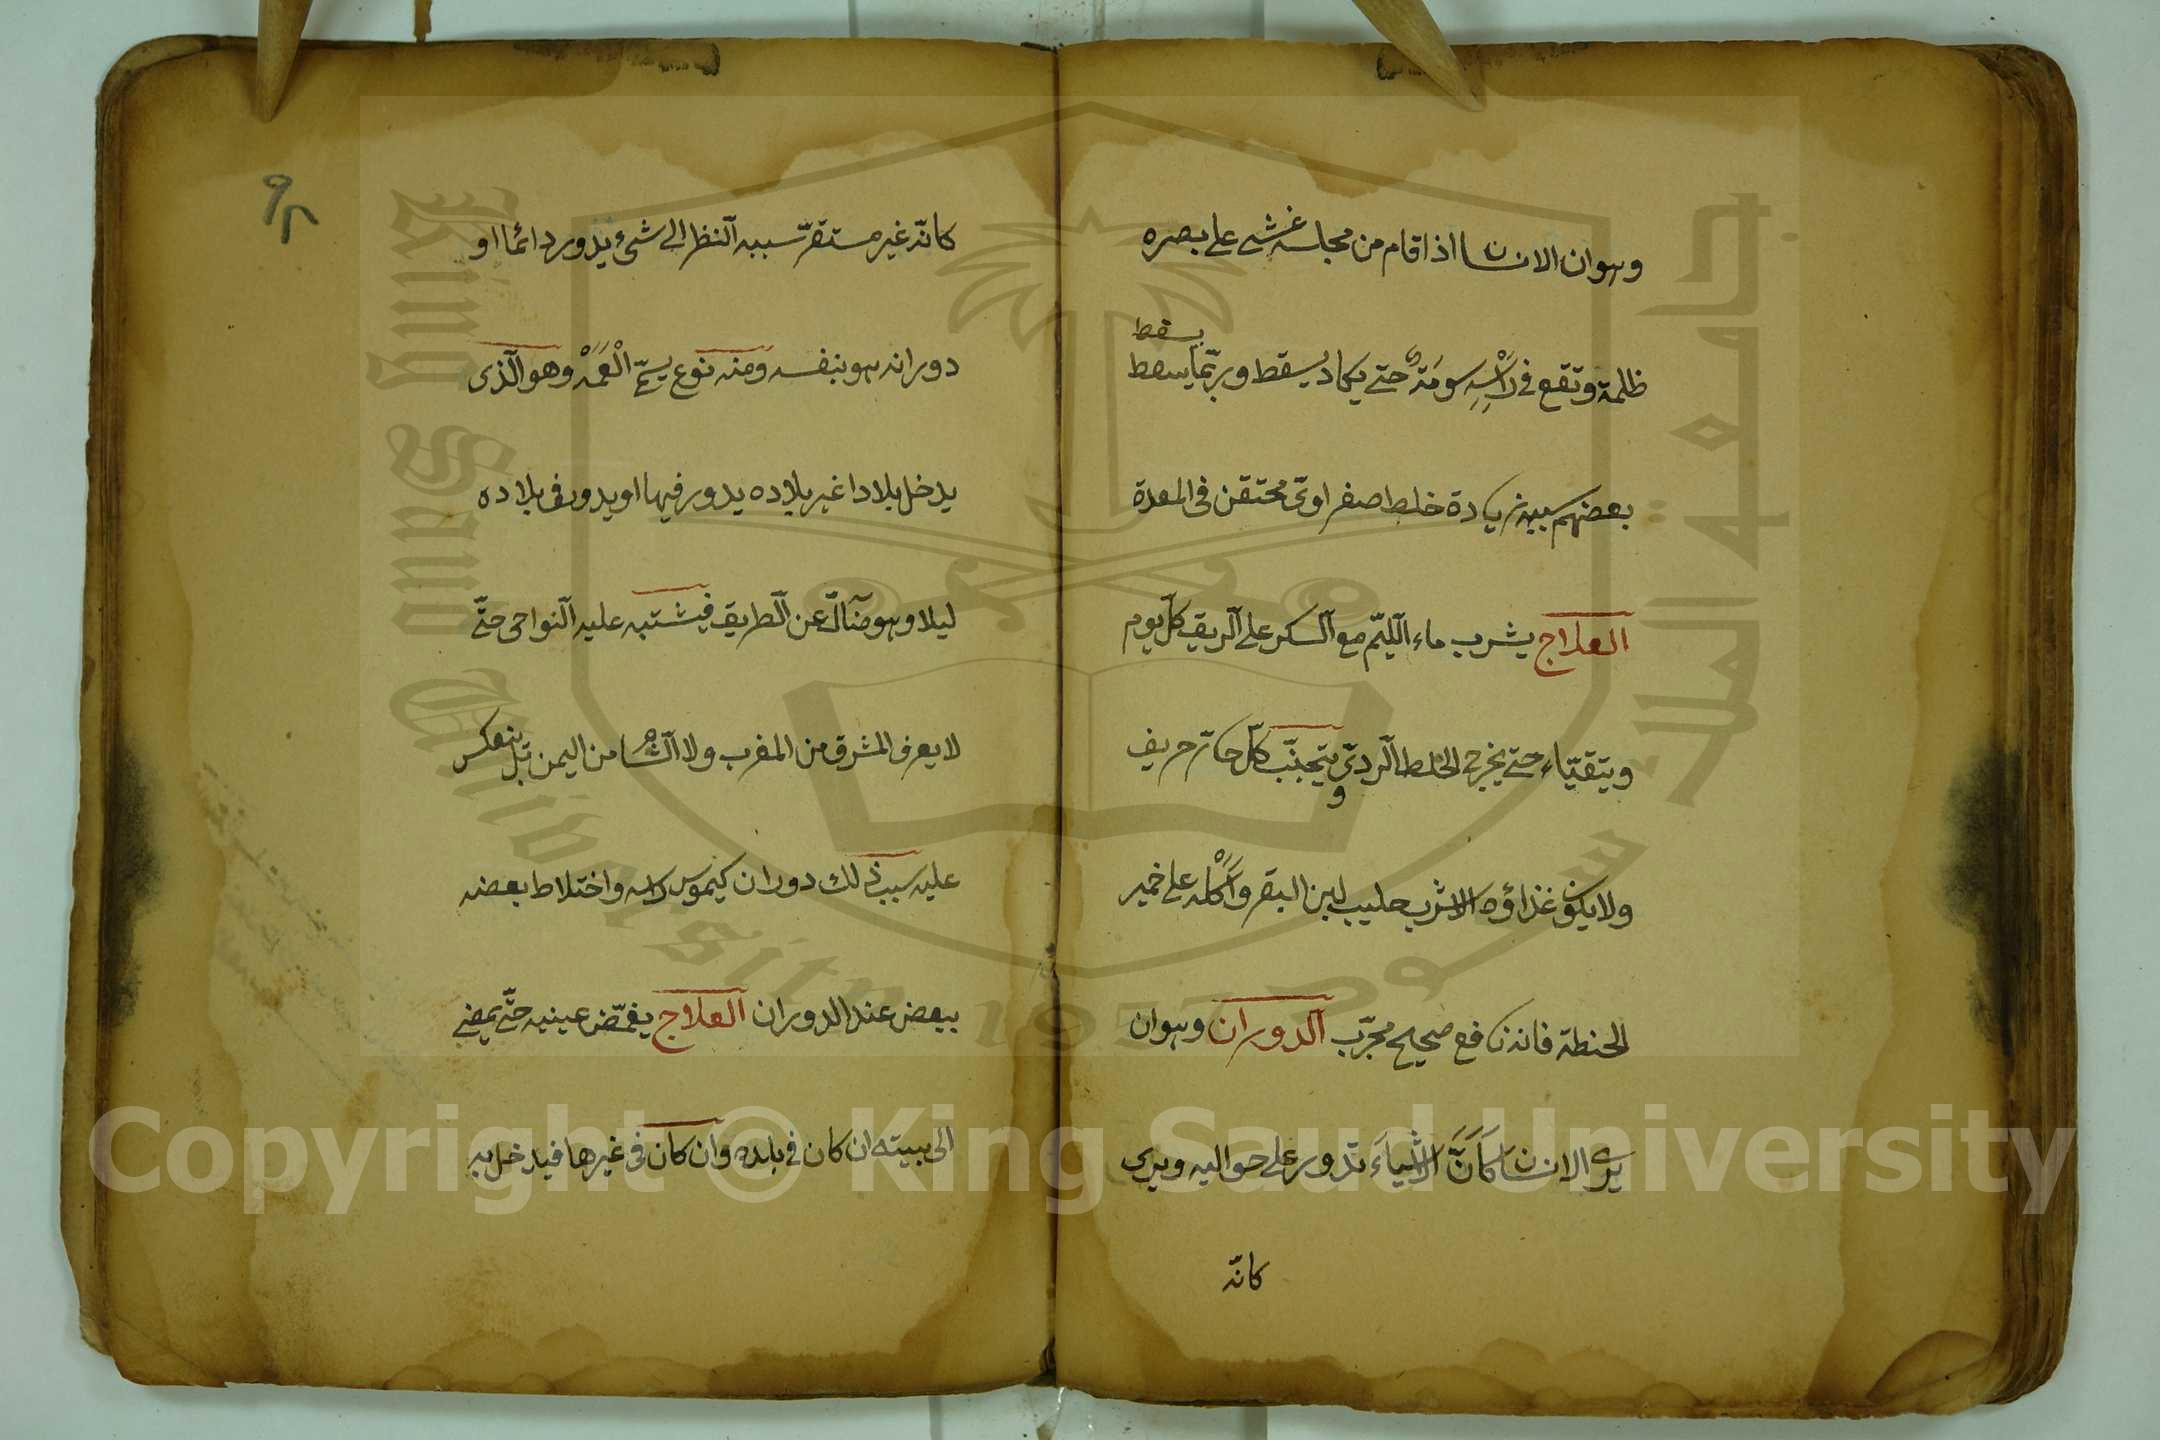 وهو ان الانسان اذا قام من مجلسه غشى على بصره
ظلمة وتقع في رَأسِهِ سومَةٌ حتى يكاد يسقط وربّما يسقط
يسقط
بعضهم سببه زيادة خلط صفراوىّ محتقن فى المعدة
العلاج يشرب ماء الليّم مع السكر على الريق كلّ يوم
ويتقيّاء حتى يخرج الخلط الردىّ ويتجنّب كلّ حار حريف
ولا يكون غذاؤه الا شرب حليب لبن البقر وَأَكْله على خمير
الحنطة فانه نافع صحيح مجرّب الدوران وهو ان
يرى الانسان كَأَنَّ الاشياءَ تدور على حواليه ويرى
كانّه
٩٢
كانّه غير مستقرّ سببه النظر الى شىء يدور دائما او
دورانه هو بنفسه ومنه نوع يسمّى الْعَمَهْ وهو الّذى
يدخل بلادا غير بلاده يدور فيها او يدور فى بلاده
ليلا وهو ضآلّ عن الطريق فيشتبه عليه النواحى حتّى
لا يعرف المشرق من المغرب ولا الشام من اليمن بل ينعكس
عليه سبب ذلك دوران كيموس راسه واختلاط بعضه
ببعض عند الدوران العلاج يغمّض عينيه حتّى يمضى
الى بيته ان كان فى بلده وان كان فى غيرها فيدخل به
Copyright © King Saud University
جامعة الملك سعود
King Saud University
1957